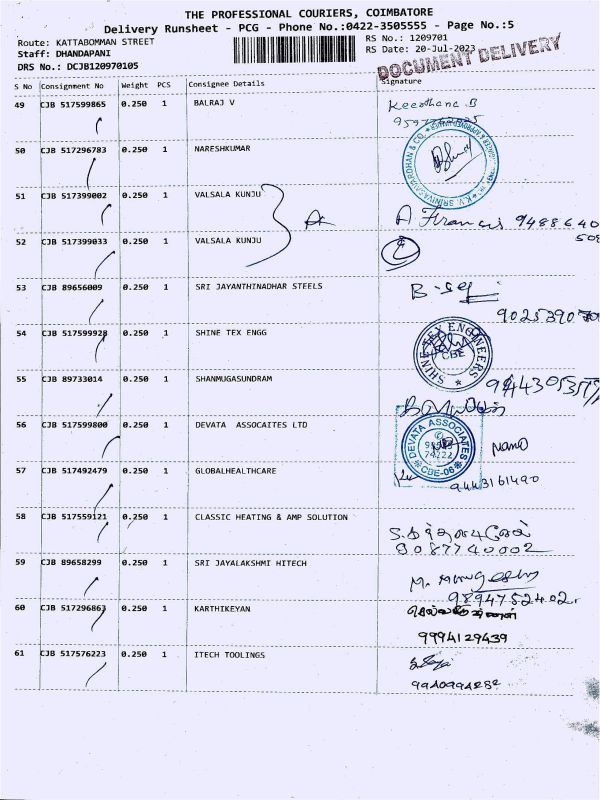 THE PROFESSIONAL COURIERS, COIMBATORE
Delivery Runsheet - PCG - Phone No.:0422-3505555 - Page No.:5
Route: KATTABOMMAN STREET RS No.: 1209701
Staff: DHANDAPANI RS Date: 20-Jul-2023
DRS No.: DCJB120970105
DOCUMENT DELIVERY
S No Consignment No Weight PCS Consignee Details Signature
49 CJB 517599865 0.250 1 BALRAJ V
Keerthana B
50 CJB 517296783 0.250 1 NARESHKUMAR
51 CJB 517399002 0.250 1 VALSALA KUNJU
A Francis 9488640
508
52 CJB 517399033 0.250 1 VALSALA KUNJU
53 CJB 89656009 0.250 1 SRI JAYANTHINADHAR STEELS
54 CJB 517599928 0.250 1 SHINE TEX ENGG
SHINE TEX ENGINEERS
CBE
55 CJB 89733014 0.250 1 SHANMUGASUNDRAM
56 CJB 517599800 0.250 1 DEVATA ASSOCAITES LTD
DEVATA ASSOCIATES
CBE-06
57 CJB 517492479 0.250 1 GLOBALHEALTHCARE
9443161490
58 CJB 517559121 0.250 1 CLASSIC HEATING & AMP SOLUTION
9087740002
59 CJB 89658299 0.250 1 SRI JAYALAKSHMI HITECH
9894752402
60 CJB 517296863 0.250 1 KARTHIKEYAN
9994129439
61 CJB 517576223 0.250 1 ITECH TOOLINGS